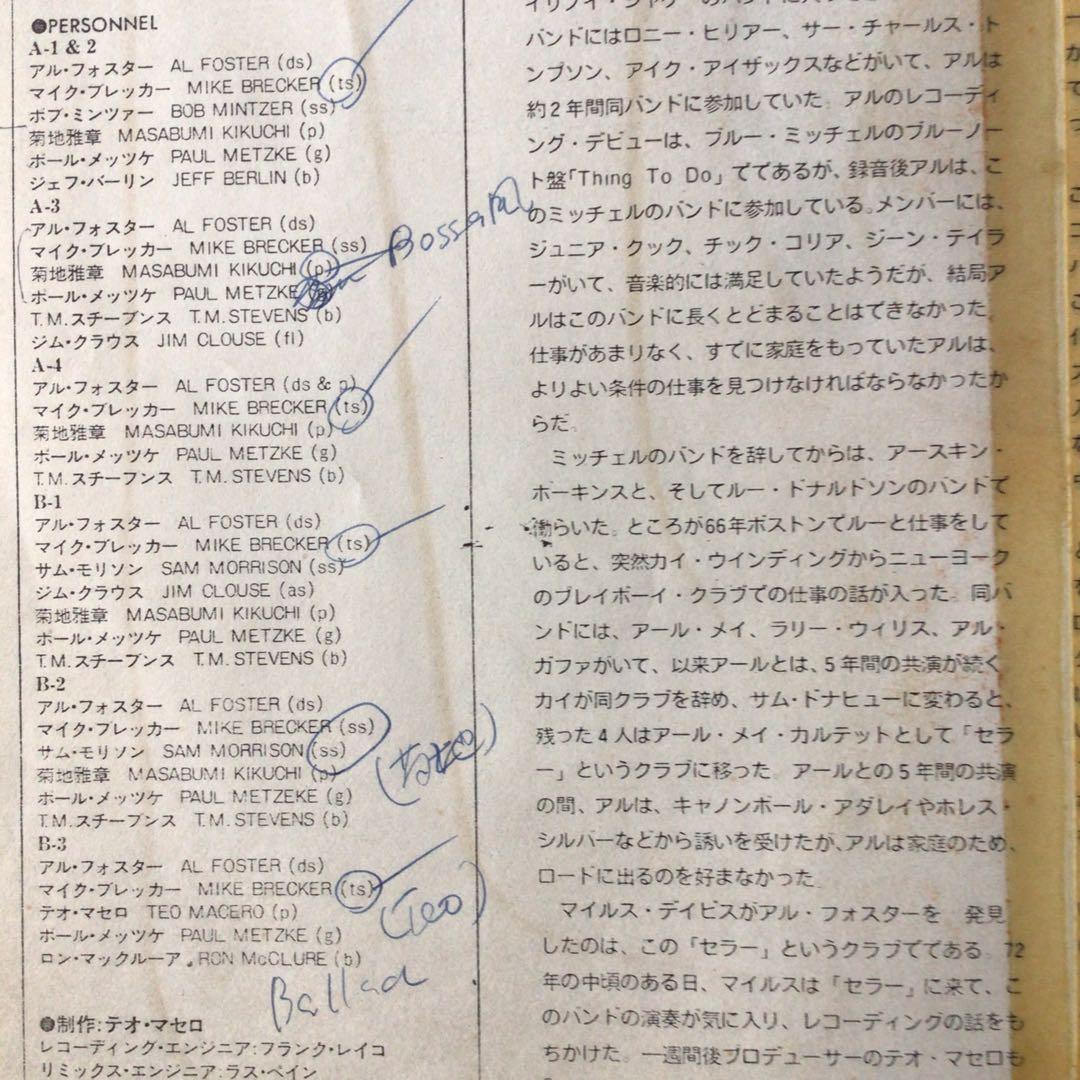 ●PERSONNEL
A-1 & 2
アル・フォスター AL FOSTER (ds)
マイク・ブレッカー MIKE BRECKER (ts)
ボブ・ミンツァー BOB MINTZER (ss)
菊地雅章 MASABUMI KIKUCHI (p)
ポール・メッツケ PAUL METZKE (g)
ジェフ・バーリン JEFF BERLIN (b)
A-3
アル・フォスター AL FOSTER (ds)
マイク・ブレッカー MIKE BRECKER (ss)
菊地雅章 MASABUMI KIKUCHI (p)
ポール・メッツケ PAUL METZKE
T.M.スチーブンス T.M. STEVENS (b)
ジム・クラウス JIM CLOUSE (fl)
A-4
アル・フォスター AL FOSTER (ds & p)
マイク・ブレッカー MIKE BRECKER (ts)
菊地雅章 MASABUMI KIKUCHI (p)
ポール・メッツケ PAUL METZKE (g)
T.M.スチーブンス T.M. STEVENS (b)
B-1
アル・フォスター AL FOSTER (ds)
マイク・ブレッカー MIKE BRECKER (ts)
サム・モリソン SAM MORRISON (ss)
ジム・クラウス JIM CLOUSE (as)
菊地雅章 MASABUMI KIKUCHI (p)
ポール・メッツケ PAUL METZKE (g)
T.M.スチーブンス T.M. STEVENS (b)
B-2
アル・フォスター AL FOSTER (ds)
マイク・ブレッカー MIKE BRECKER (ss)
サム・モリソン SAM MORRISON (ss)
菊地雅章 MASABUMI KIKUCHI (p)
ポール・メッツケ PAUL METZEKE (g)
T.M.スチーブンス T.M. STEVENS (b)
B-3
アル・フォスター AL FOSTER (ds)
マイク・ブレッカー MIKE BRECKER (ts)
テオ・マセロ TEO MACERO (p)
(Teo)
ポール・メッツケ PAUL METZKE (g)
ロン・マックルーア RON McCLURE (b)
Ballad
●制作:テオ・マセロ
レコーディング・エンジニア:フランク・レイコ
リミックス・エンジニア:ラス・ペイン
バンドにはロニー・ヒリアー、サー・チャールス・ト
ンプソン、アイク・アイザックスなどがいて、アルは
約2年間同バンドに参加していた。アルのレコーディ
ング・デビューは、ブルー・ミッチェルのブルーノー
ト盤「Thing To Do」でてあるが、録音後アルは、こ
のミッチェルのバンドに参加している。メンバーには、
ジュニア・クック、チック・コリア、ジーン・テイラ
ーがいて、音楽的には満足していたようだが、結局ア
ルはこのバンドに長くとどまることはできなかった。
仕事があまりなく、すでに家庭をもっていたアルは、
よりよい条件の仕事を見つけなければならなかったか
らだ。
ミッチェルのバンドを辞してからは、アースキン・
ホーキンスと、そしてルー・ドナルドソンのバンドで
働らいた。ところが66年ボストンでルーと仕事をして
いると、突然カイ・ウインディングからニューヨーク
のプレイボーイ・クラブでの仕事の話が入った。同バ
ンドには、アール・メイ、ラリー・ウィリス、アル・
ガファがいて、以来アールとは、5年間の共演が続く。
カイが同クラブを辞め、サム・ドナヒューに変わると、
残った4人はアール・メイ・カルテットとして「セラ
ー」というクラブに移った。アールとの5年間の共演
の間、アルは、キャノンボール・アダレイやホレス・
シルバーなどから誘いを受けたが、アルは家庭のため、
ロードに出るのを好まなかった。
マイルス・デイビスがアル・フォスターを 発見
したのは、この「セラー」というクラブでてある。72
年の中頃のある日、マイルスは「セラー」に来て、こ
のバンドの演奏が気に入り、レコーディングの話をも
ちかけた。一週間後プロデューサーのテオ・マセロも